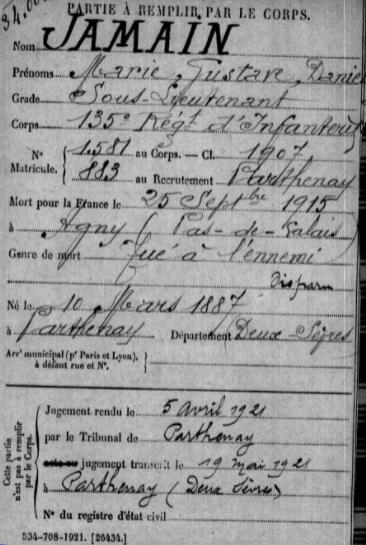 34.00
PARTIE À REMPLIR PAR LE CORPS.
Nom JAMAIN
Prénoms Marie, Gustav, Danie
Grade Sous-Lieutenant
Corps 135e Régt d'Infanterie
N° Matricule. { 1.581 au Corps. — Cl. 1907
883 au Recrutement Parthenay
Mort pour la France le 25 Septbre 1915
à Agny (Pas-de-Calais)
Genre de mort Tué à l'ennemi
Disparu
Né le 10 Mars 1887
à Parthenay Département Deux-Sèvres
Arrt municipal (pr Paris et Lyon), à défaut rue et N°. }
Cette partie n'est pas à remplir par le Corps.
Jugement rendu le 5 avril 1921
par le Tribunal de Parthenay
jugement transcrit le 19 mai 1921
à Parthenay (Deux Sèvres)
N° du registre d'état civil
534-708-1921. [26434.]